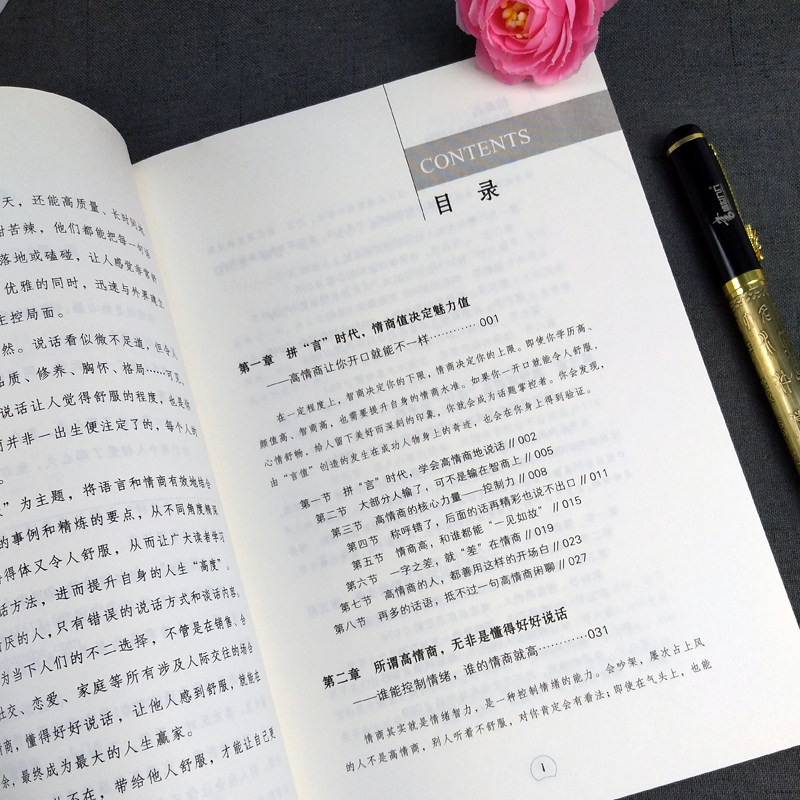 天，还能高质量、长时间地
甘苦辣，他们都能把每一句话
落地或磕碰，让人感觉非常舒
优雅的同时，迅速与外界建立
主控局面。
然。说话看似微不足道，但令人
品质、修养、胸怀、格局……可见，
说话让人觉得舒服的程度，也是
而并非一出生便注定了的，每个人的
”为主题，将语言和情商有效地结合
的事例和精炼的要点，从不同角度精深
得体又令人舒服，从而让广大读者学习
话方法，进而提升自身的人生“高度”。
讨厌的人，只有错误的说话方式和谈话内容。
为当下人们的不二选择，不管是在销售、台
社交、恋爱、家庭等所有涉及人际交往的场合
商，懂得好好说话，让他人感到舒服，就能在
余，最终成为最大的人生赢家。
不在，带给他人舒服，才能让自己更
CONTENTS
目 录
第一章 拼“言”时代，情商值决定魅力值
——高情商让你开口就能不一样………… 001
在一定程度上，智商决定你的下限，情商决定你的上限。即使你学历高、
颜值高、智商高，也需要提升自身的情商水准。如果你一开口就能令人舒服，
心情舒畅，给人留下美好而深刻的印象，你就会成为话题掌控者。你会发现，
由“言值”创造的发生在成功人物身上的奇迹，也会在你身上得到验证。
第一节 拼“言”时代，学会高情商地说话 // 002
第二节 大部分人输了，可不是输在智商上 // 005
第三节 高情商的核心力量——控制力 // 008
第四节 称呼错了，后面的话再精彩也说不出口 // 011
第五节 情商高，和谁都能“一见如故” // 015
第六节 一字之差，就“差”在情商 // 019
第七节 高情商的人，都善用这样的开场白 // 023
第八节 再多的话语，抵不过一句高情商闲聊 // 027
第二章 所谓高情商，无非是懂得好好说话
——谁能控制情绪，谁的情商就高…………031
情商其实就是情绪智力，是一种控制情绪的能力。会吵架，屡次占上风
的人不是高情商，别人听着不舒服，对你肯定会有看法；即使在气头上，也能
1